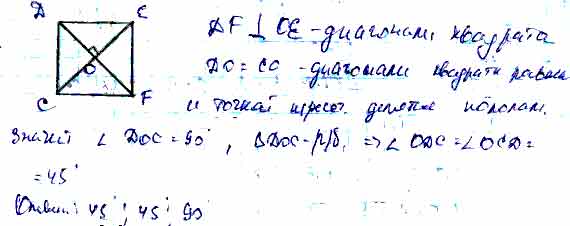 D E
O
C F
DF ⊥ CE - диагонали квадрата
DO = CO - диагонали квадрата равны
и точкой пересеч. делятся пополам.
Значит ∠ DOC = 90°, ΔDOC - р/б. => ∠ ODC = ∠ OCD =
= 45°
Ответ: 45°; 45°; 90°